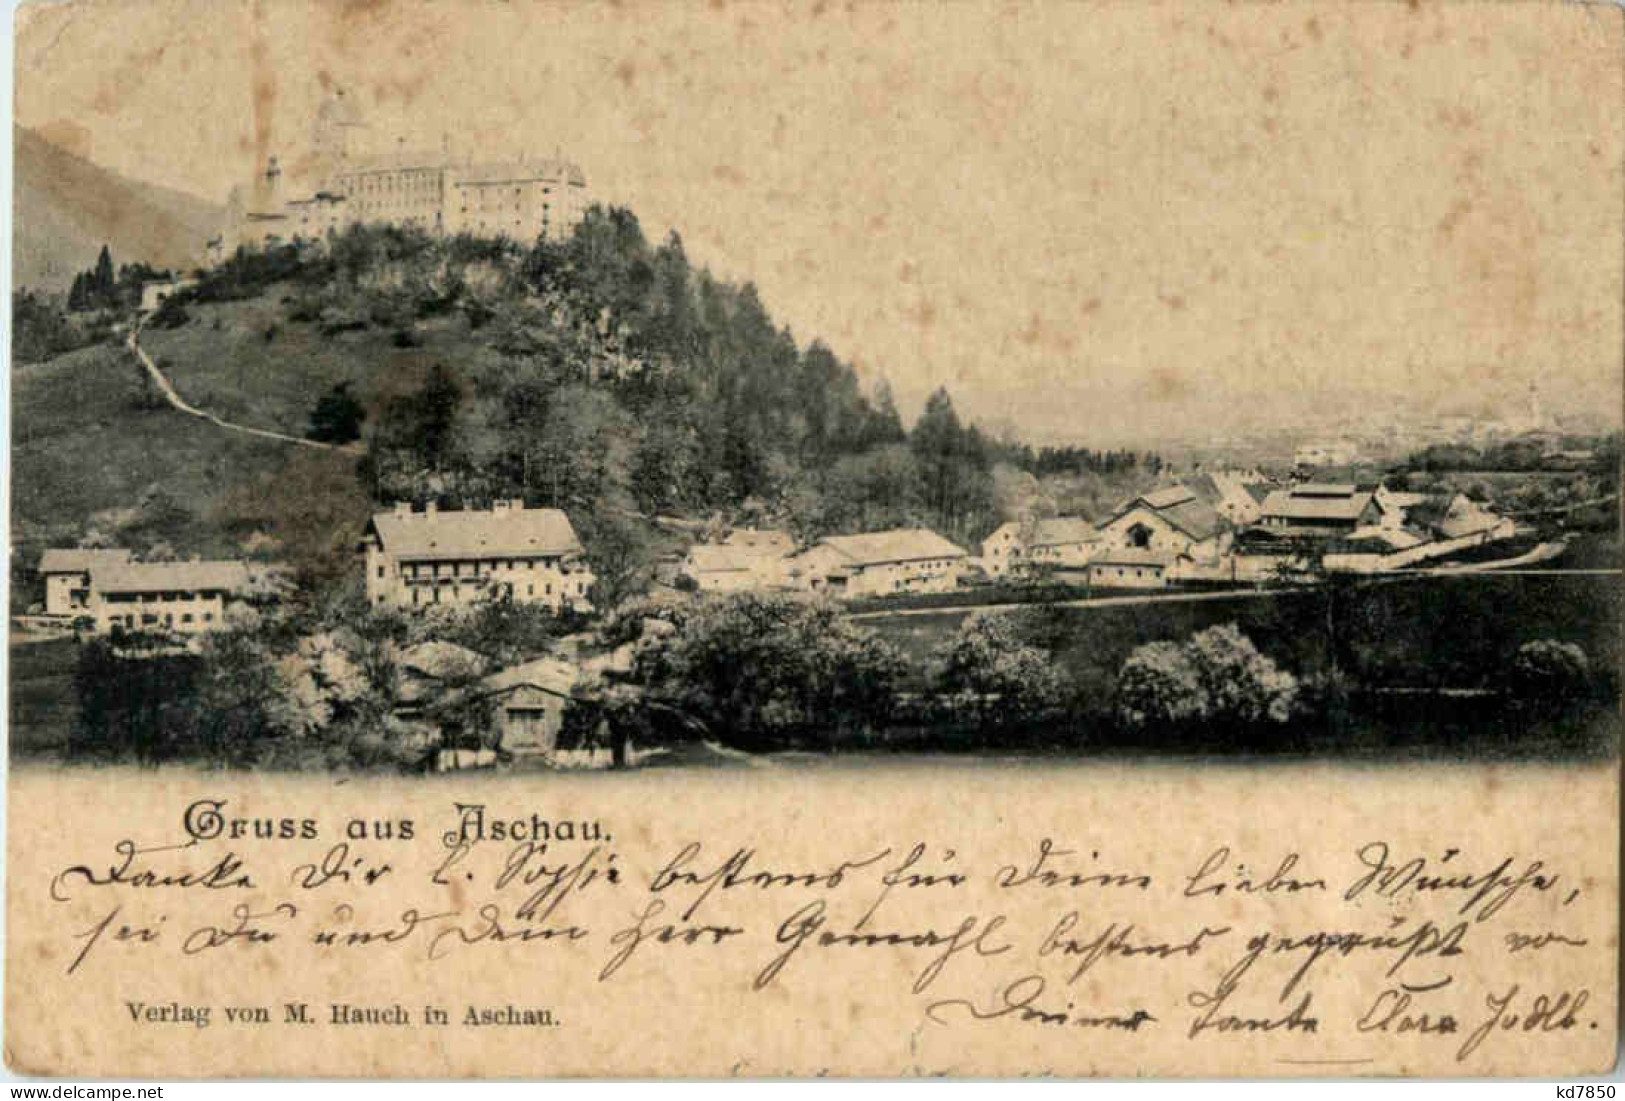 Gruss aus Aschau.
Danke Dir l. Sophie bestens für Deine lieben Wünsche,
sei Du und Dein Herr Gemahl bestens gegrüßt von
Deiner Tante Clara Jodlb.
Verlag von M. Hauch in Aschau.
www.delcampe.net
kd7850